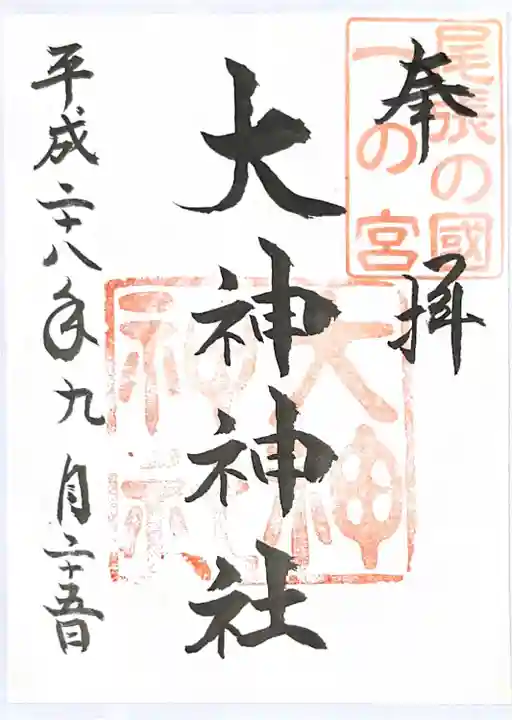 奉拝
尾張の國
一の宮
大神神社
大神
神社
平成二十八年九月二十五日